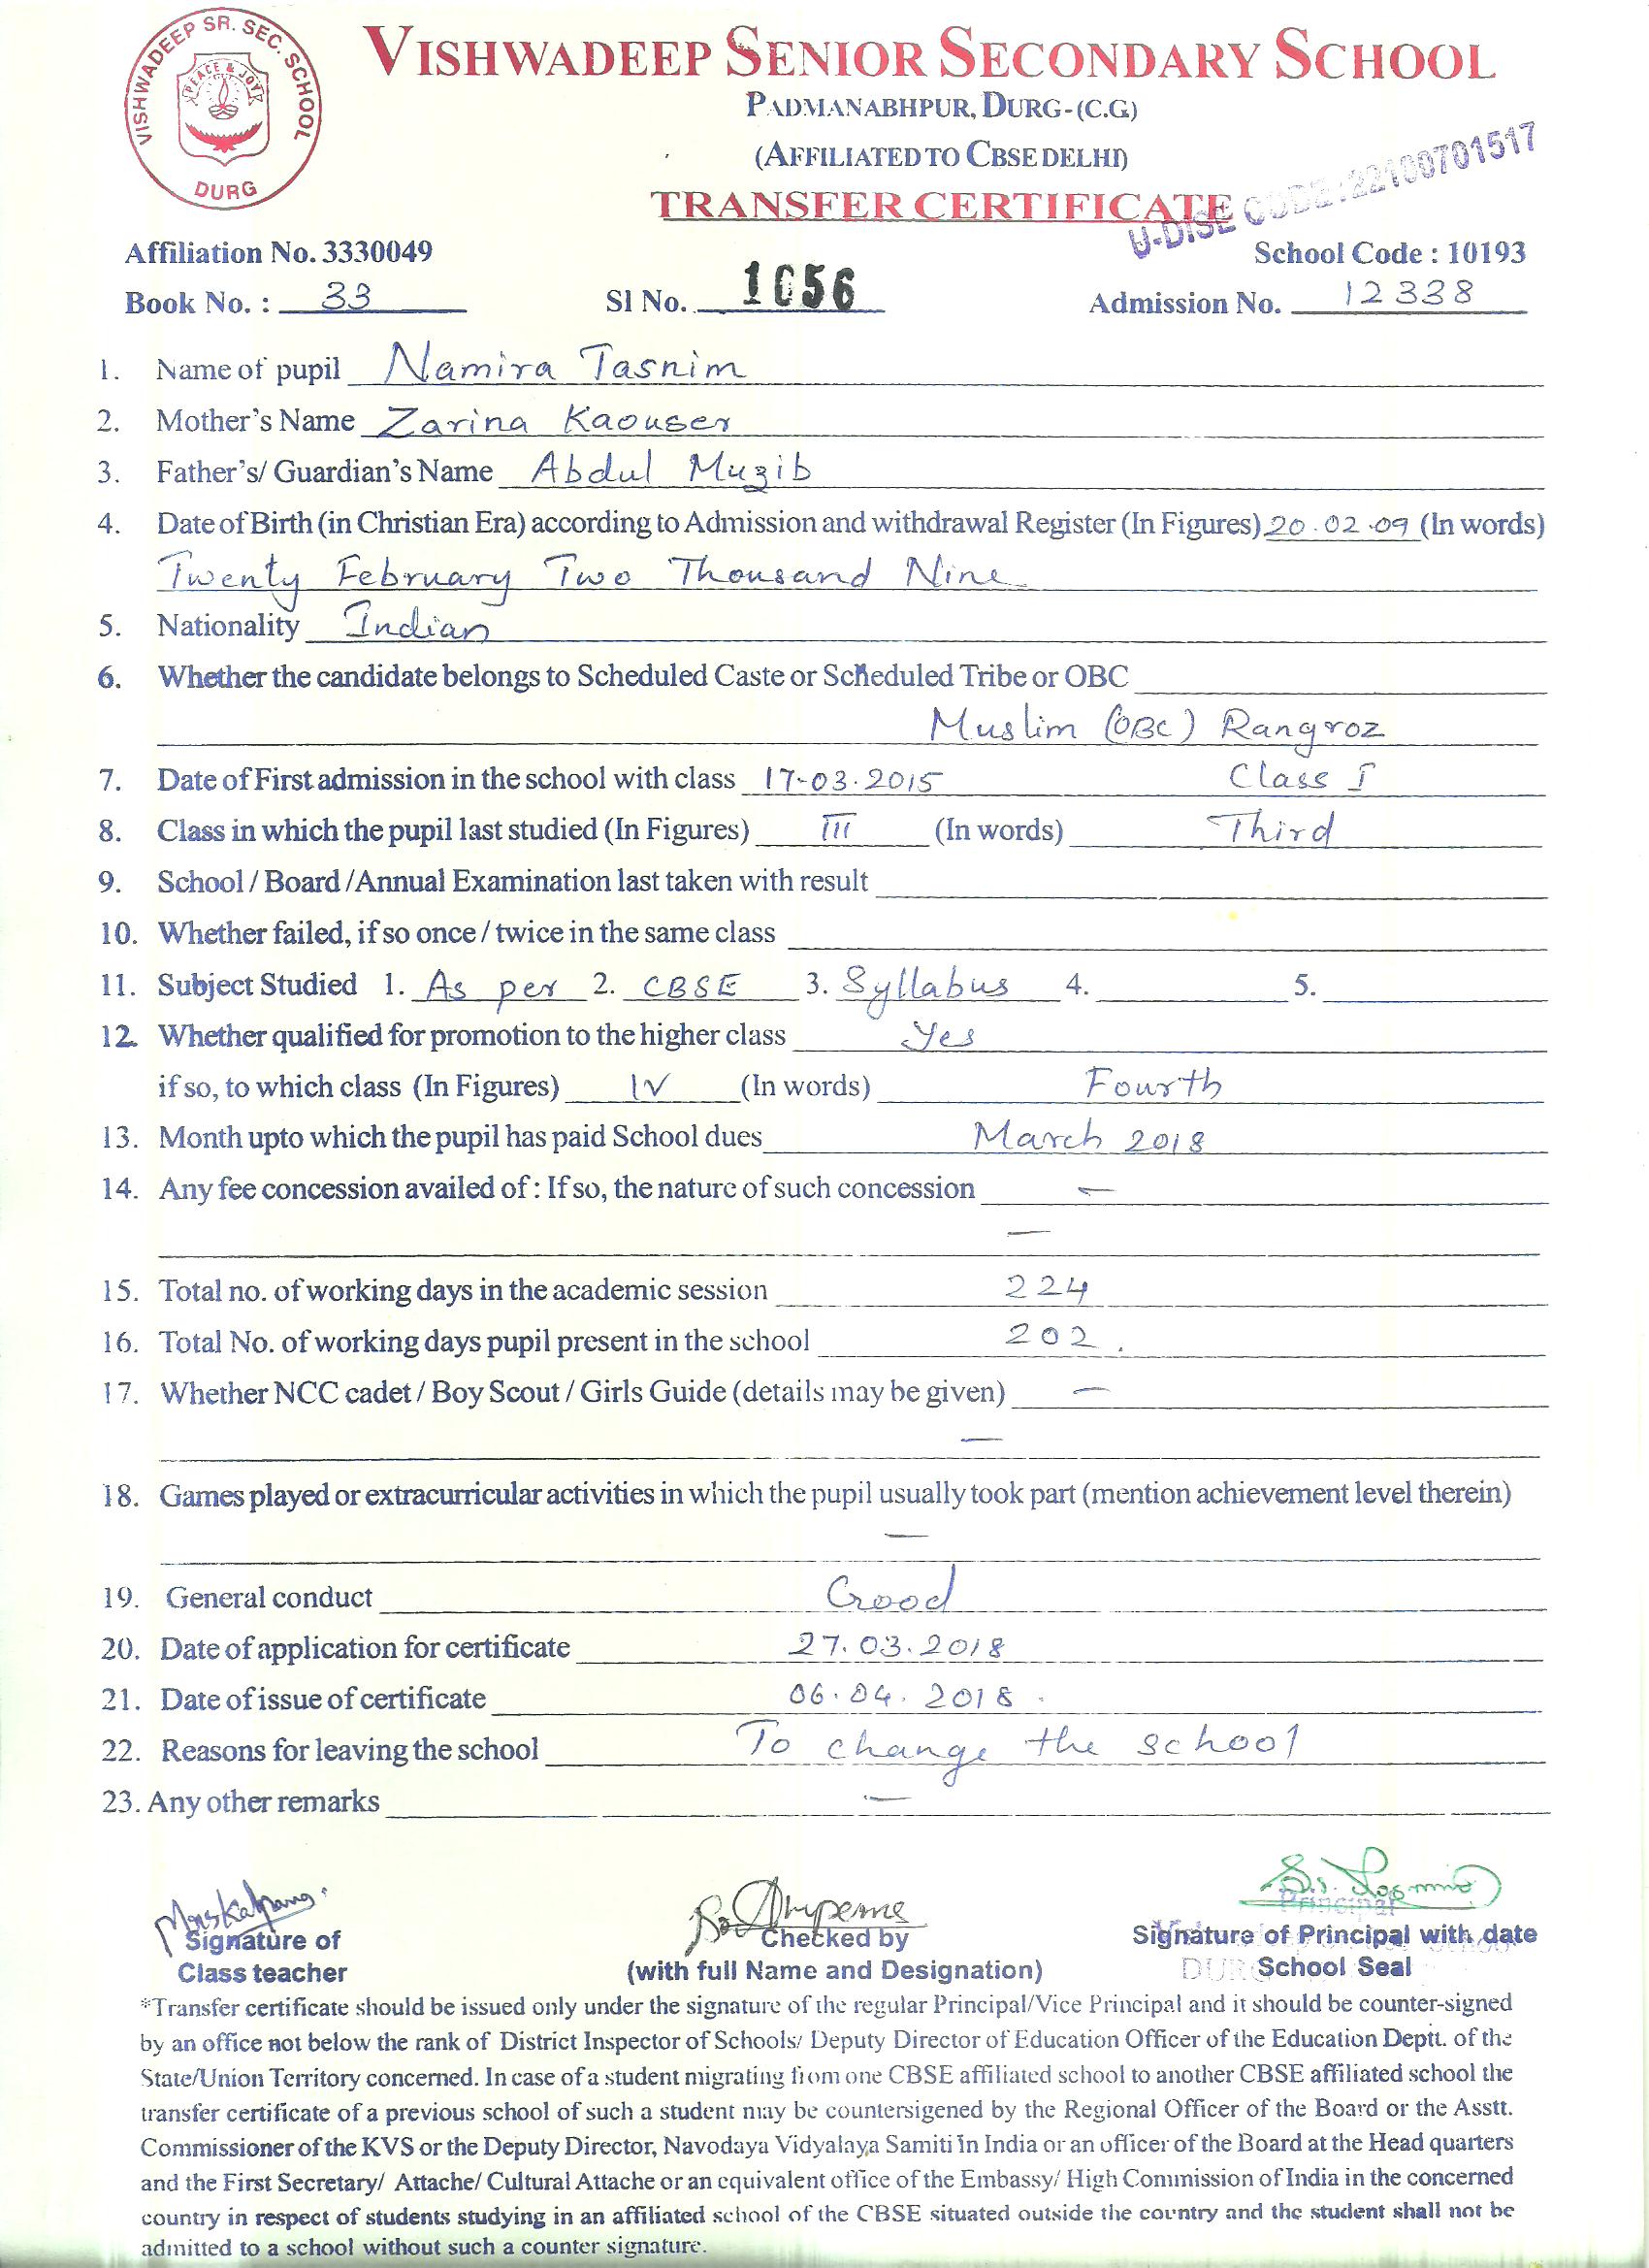 VISHWADEEP SR. SEC. SCHOOL
PEACE & JOY
DURG
VISHWADEEP SENIOR SECONDARY SCHOOL
PADMANABHPUR, DURG-(C.G)
(AFFILIATED TO CBSE DELHI)
TRANSFER CERTIFICATE
U-DISE CODE : 22100701517
Affiliation No. 3330049 School Code : 10193
Book No. : 33 Sl No. 1056 Admission No. 12338
1. Name of pupil Namira Tasnim
2. Mother's Name Zarina Kaouser
3. Father's/ Guardian's Name Abdul Muzib
4. Date of Birth (in Christian Era) according to Admission and withdrawal Register (In Figures) 20.02.09 (In words)
Twenty February Two Thousand Nine
5. Nationality Indian
6. Whether the candidate belongs to Scheduled Caste or Scheduled Tribe or OBC
Muslim (OBC) Rangroz
7. Date of First admission in the school with class 17-03.2015 Class I
8. Class in which the pupil last studied (In Figures) III (In words) Third
9. School / Board /Annual Examination last taken with result
10. Whether failed, if so once / twice in the same class
11. Subject Studied 1. As per 2. CBSE 3. Syllabus 4. 5.
12. Whether qualified for promotion to the higher class Yes
if so, to which class (In Figures) IV (In words) Fourth
13. Month upto which the pupil has paid School dues March 2018
14. Any fee concession availed of : If so, the nature of such concession —
—
15. Total no. of working days in the academic session 224
16. Total No. of working days pupil present in the school 202.
17. Whether NCC cadet / Boy Scout / Girls Guide (details may be given) —
—
18. Games played or extracurricular activities in which the pupil usually took part (mention achievement level therein)
—
19. General conduct Good
20. Date of application for certificate 27.03.2018
21. Date of issue of certificate 06.04.2018.
22. Reasons for leaving the school To change the school
23. Any other remarks —
Principal
Signature of Checked by Signature of Principal with date
Class teacher (with full Name and Designation) DURG School Seal
*Transfer certificate should be issued only under the signature of the regular Principal/Vice Principal and it should be counter-signed
by an office not below the rank of District Inspector of Schools/ Deputy Director of Education Officer of the Education Deptt. of the
State/Union Territory concerned. In case of a student migrating from one CBSE affiliated school to another CBSE affiliated school the
transfer certificate of a previous school of such a student may be countersigened by the Regional Officer of the Board or the Asstt.
Commissioner of the KVS or the Deputy Director, Navodaya Vidyalaya Samiti in India or an officer of the Board at the Head quarters
and the First Secretary/ Attache/ Cultural Attache or an equivalent office of the Embassy/ High Commission of India in the concerned
country in respect of students studying in an affiliated school of the CBSE situated outside the country and the student shall not be
admitted to a school without such a counter signature.